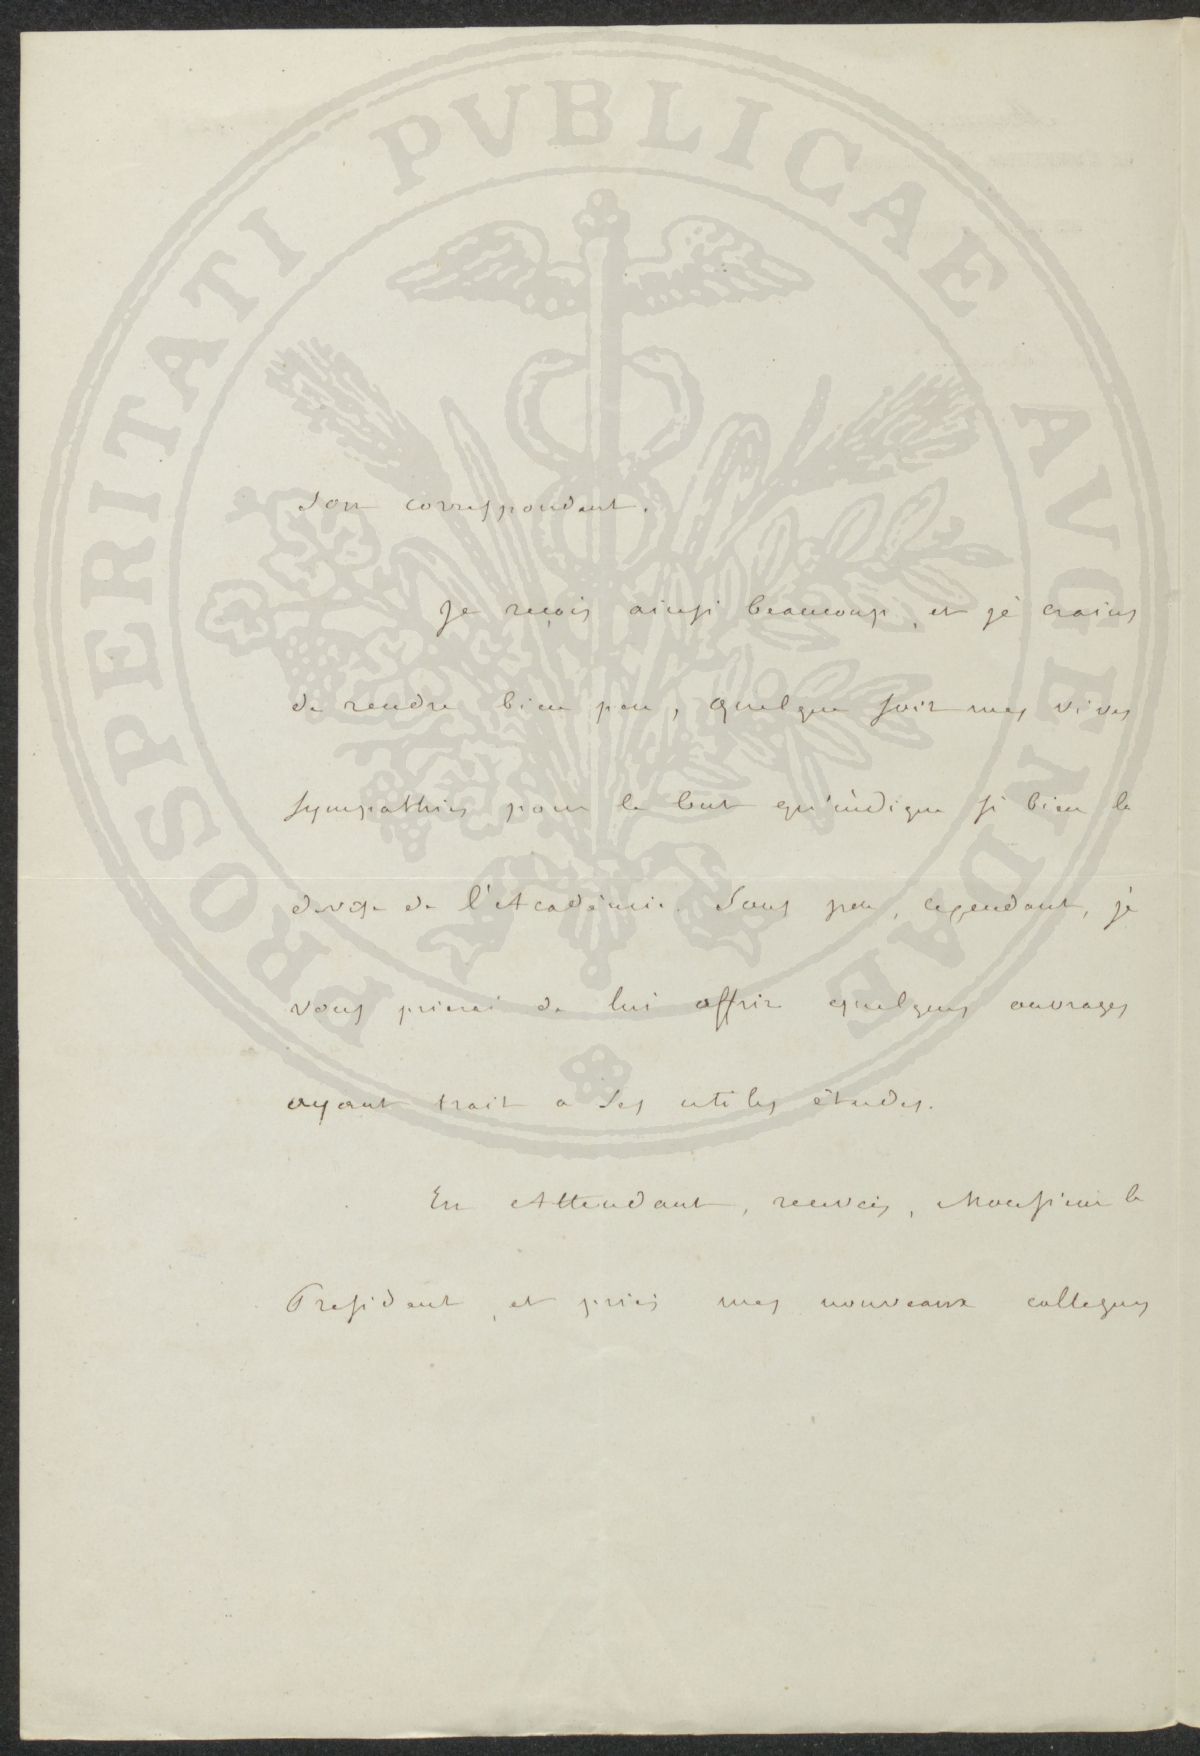 PROSPERITATI PUBLICAE AUGENDAE
son correspondant.
Je reçois ainsi beaucoup, et je crains
de rendre bien peu, quelque soit mes vives
sympathies pour le but qu'indique si bien la
devise de l'Académie. Sous peu, cependant, je
vous prierai de lui offrir quelques ouvrages
ayant trait a ses utiles études.
En Attendant, recevez, Monsieur le
President, et priez mes nouveaux collegues